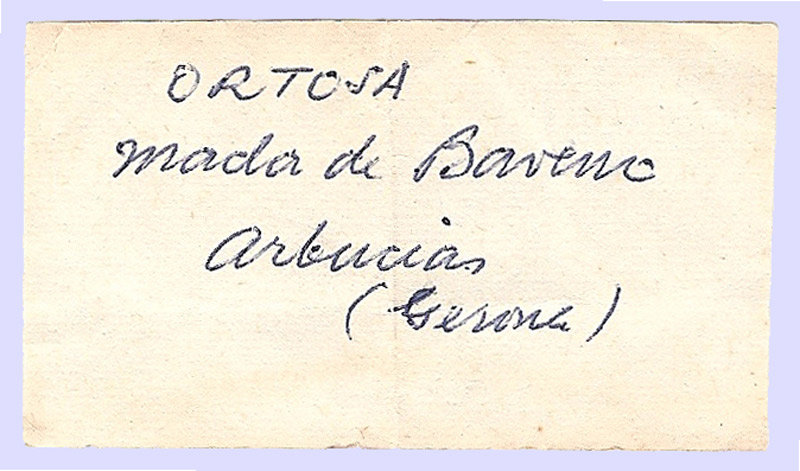 ORTOSA
macla de Baveno
Arbucias
(Gerona)